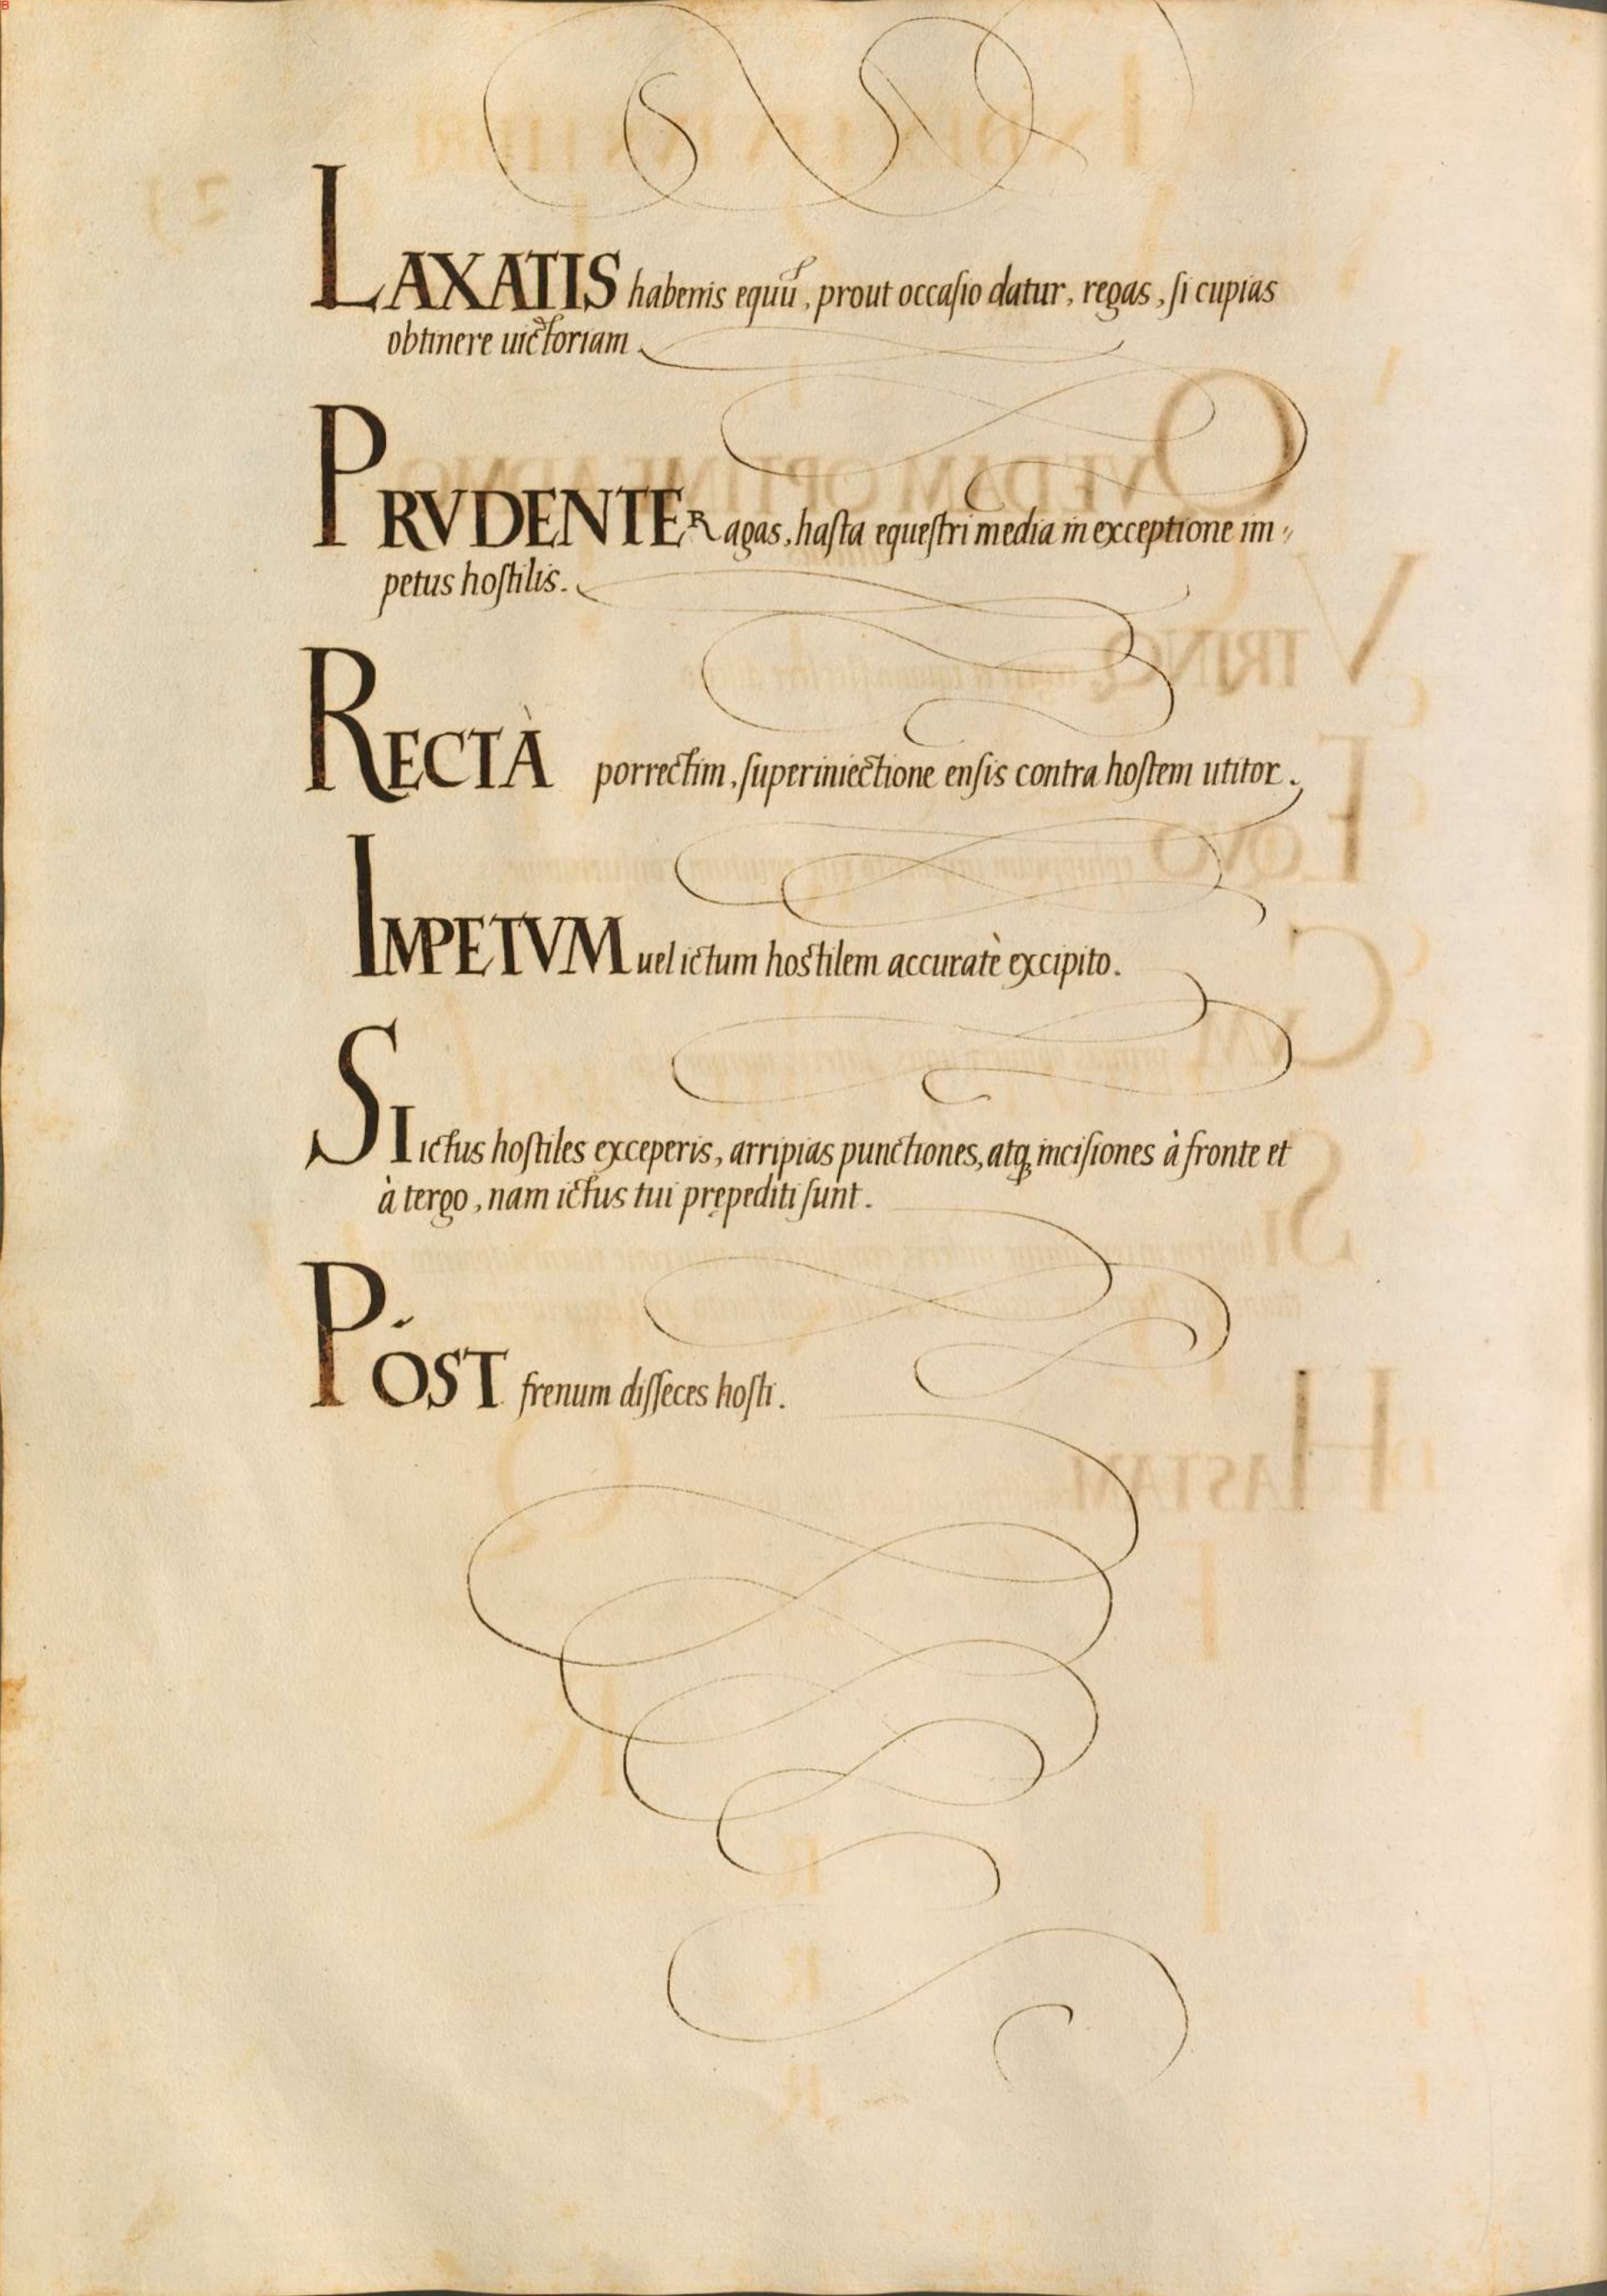 LAXATIS habenis equū, prout occaſio datur, regas, ſi cupias
obtinere uictoriam.
PRVDENTER agas, haſta equeſtri media in exceptione im⸗
petus hoſtilis.
RECTÀ porrectim, ſuperiniectione enſis contra hoſtem utitor.
IMPETVM uel ictum hostilem accuratè excipito.
SI ictus hoſtiles exceperis, arripias punctiones, atq; inciſiones à fronte et
à tergo, nam ictus tui prępediti ſunt.
PÓST frenum diſſeces hoſti.